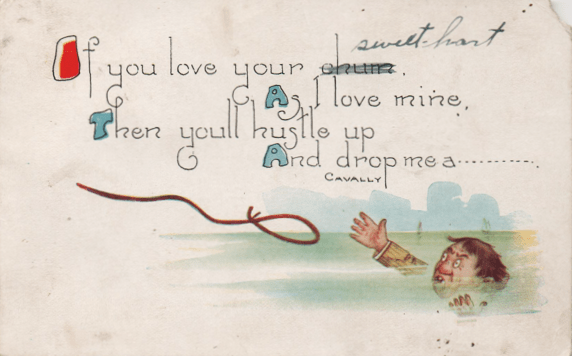 sweet-hart
If you love your chum.
As I love mine,
Then youll hustle up
And drop me a............
CAVALLY